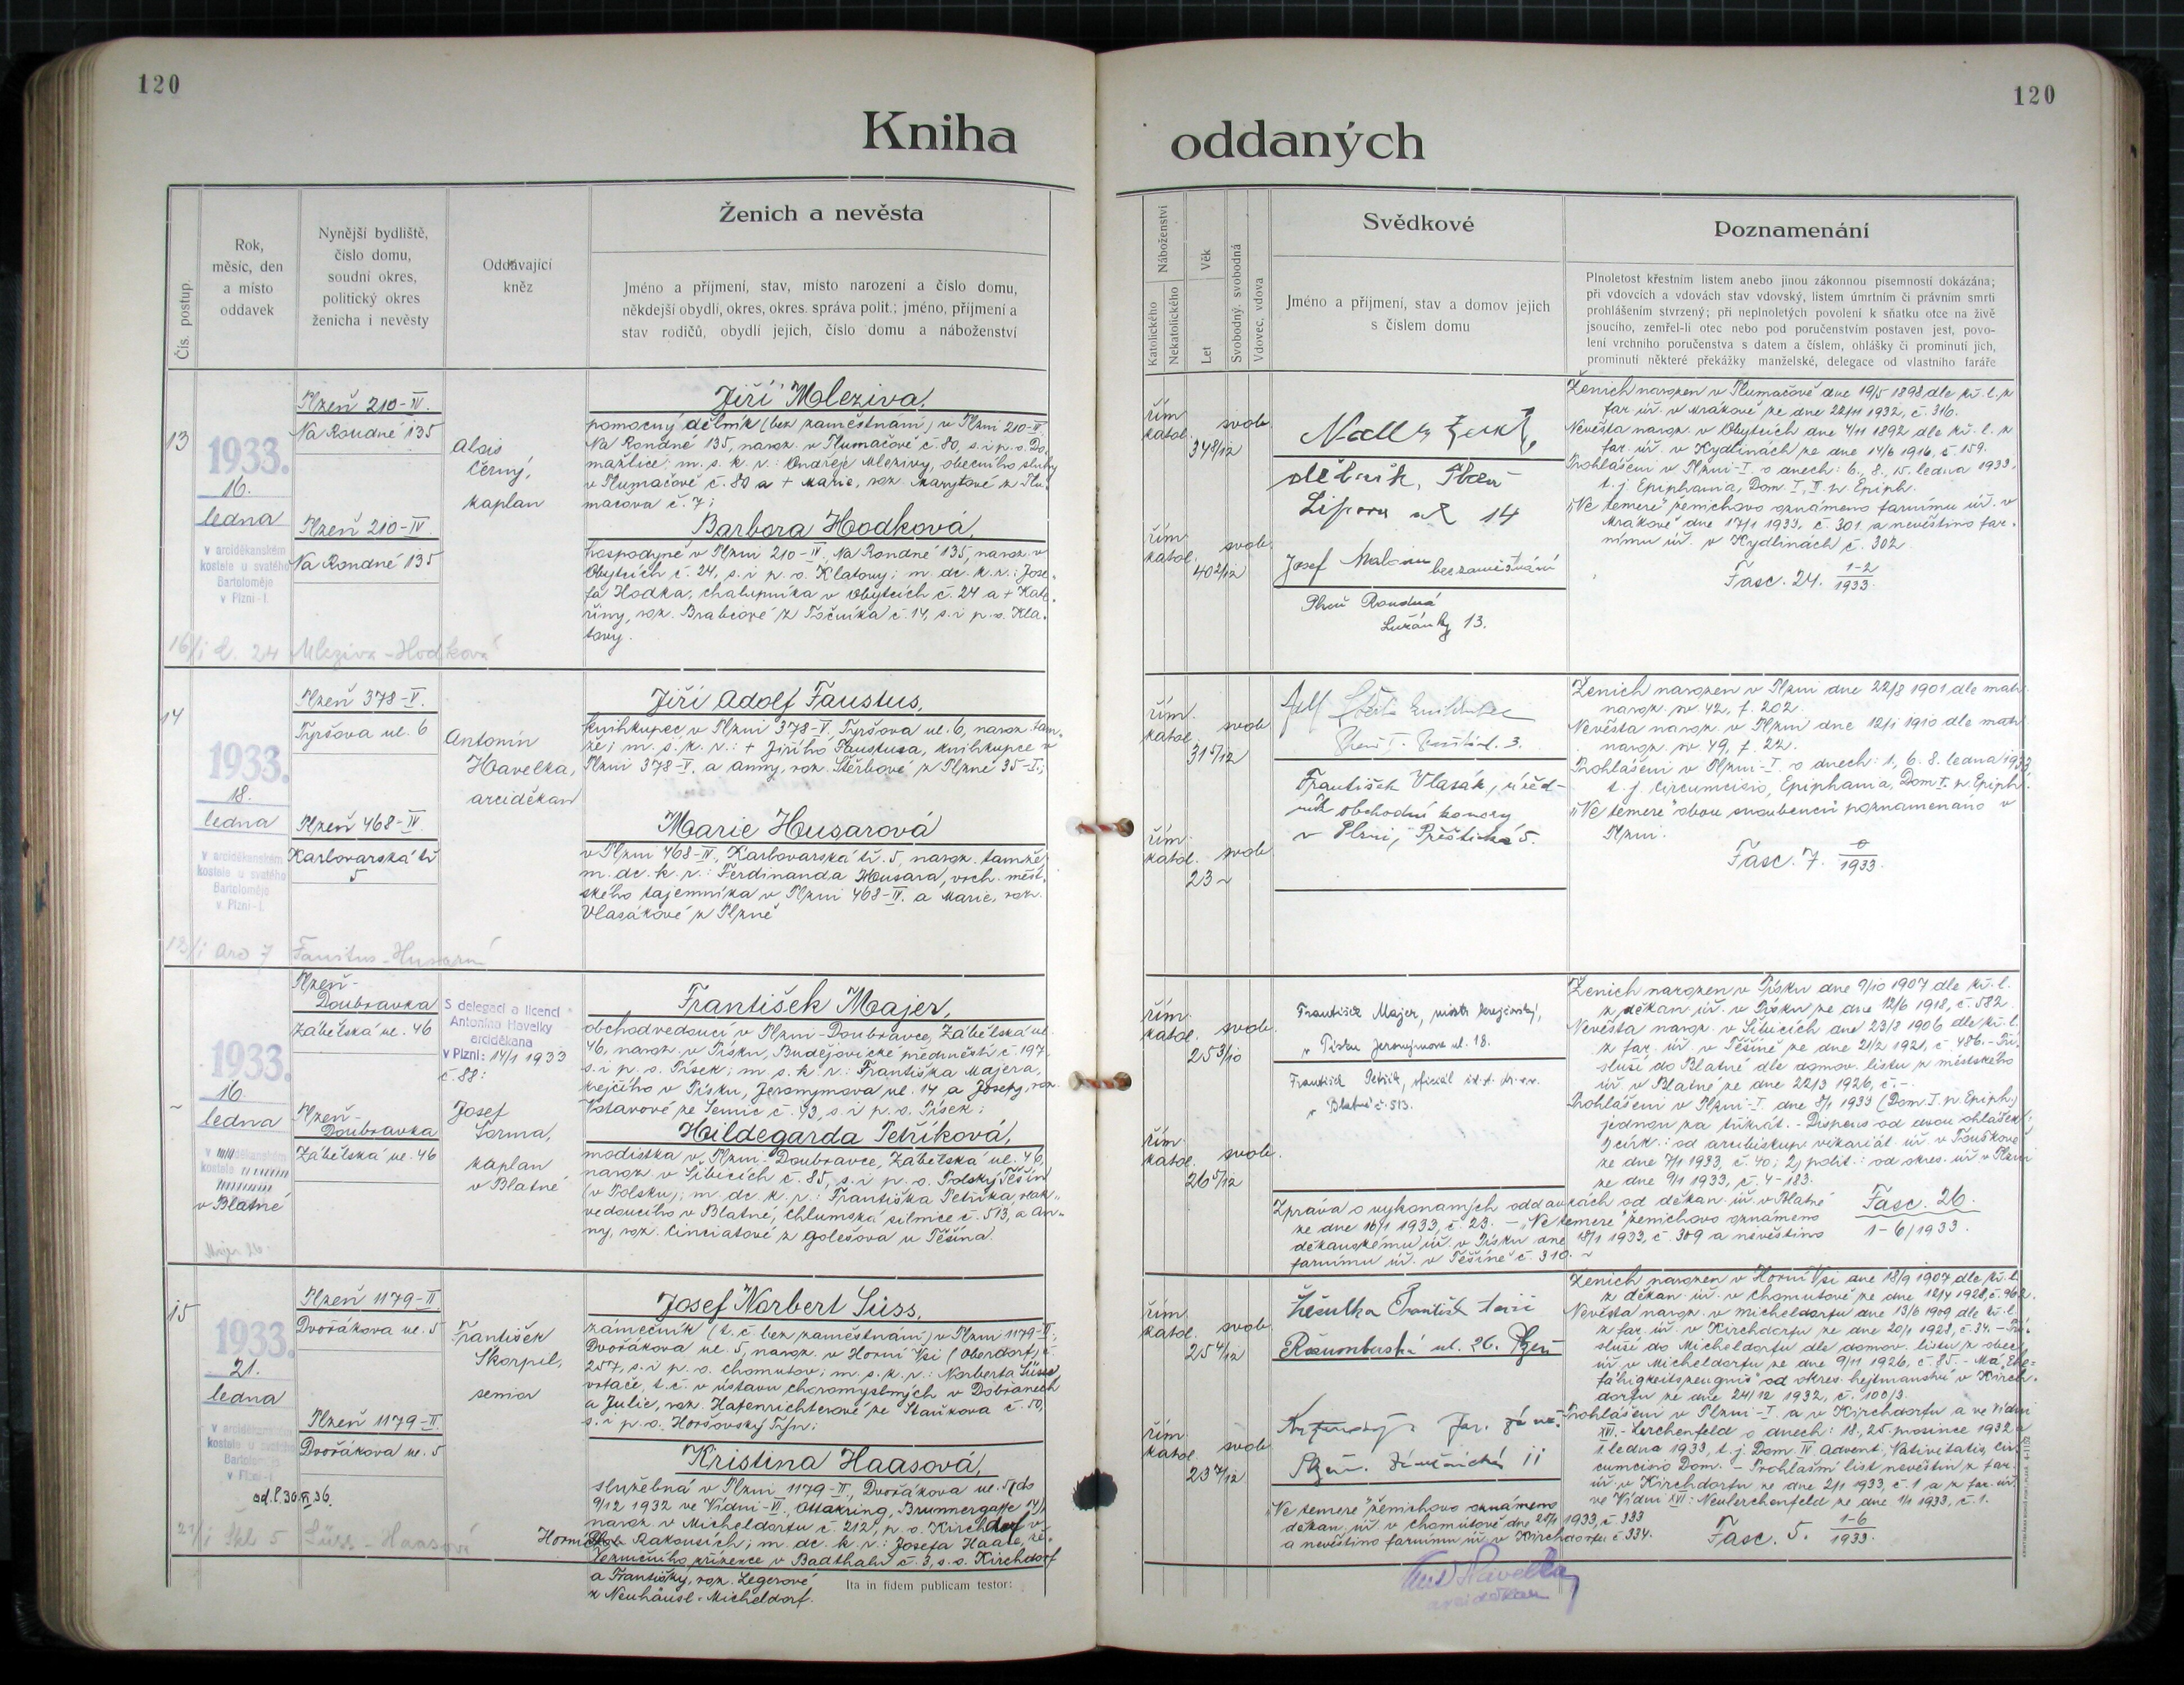 120
120
Kniha oddaných
Čís. postup.
Rok,
měsíc, den
a místo
oddavek
Nynější bydliště,
číslo domu,
soudní okres,
politický okres
ženicha i nevěsty
Oddávající
kněz
Ženich a nevěsta
Jméno a příjmení, stav, místo narození a číslo domu,
někdejší obydlí, okres, okres. správa polit.; jméno, příjmení a
stav rodičů, obydlí jejich, číslo domu a náboženství
Náboženství
Katolického
Nekatolického
Věk
Let
Svobodný, svobodná
Vdovec, vdova
Svědkové
Jméno a příjmení, stav a domov jejich
s číslem domu
Poznamenání
Plnoletost křestním listem anebo jinou zákonnou písemností dokázána;
při vdovcích a vdovách stav vdovský, listem úmrtním či právním smrti
prohlášením stvrzený; při neplnoletých povolení k sňatku otce na živě
jsoucího, zemřel-li otec nebo pod poručenstvím postaven jest, povo-
lení vrchního poručenstva s datem a číslem, ohlášky či prominutí jich,
prominutí některé překážky manželské, delegace od vlastního faráře
13
1933.
16.
ledna
v arciděkanském
kostele u svatého
Bartoloměje
v Plzni-I.
Plzeň 210-IV.
Na Roudné 135
Plzeň 210-IV
Na Roudné 135
Alois
Černý,
kaplan
Jiří Mleziva,
pomocný dělník (bez zaměstnání) v Plzni 210-IV
Na Roudné 135, naroz. v Tlumačově č. 80, s. i p. o. Do-
mažlice; m. s. k. r.: Ondřeje Mlezivy, obecního sluhy
v Tlumačově č. 80 a + Marie, roz. Marytové z Tlu-
mačova č. 7;
Barbora Hodková,
hospodyně v Plzni 210-IV, Na Roudné 135, naroz. v
Obytcích č. 24, s. i p. o. Klatovy; m. dc. k. r.: Jose-
fa Hodka, chalupníka v Obytcích č. 24 a + Kate-
řiny, roz. Brabcové z Točníka č. 14, s. i p. o. Kla-
tovy.
16/i č. 24 Mleziva-Hodková
řím.
katol.
34 8/12
svob.
řím.
katol.
40 2/12
svob.
dělník, Plzeň
Lipova ul 14
Josef
bez zaměstnání
Plzeň Roudná
Lužánky 13.
Ženich narozen v Tlumačově dne 19/5 1898 dle kř. l. z
far. úř. v Mrákově ze dne 22/11 1932, č. 316.
Nevěsta naroz. v Obytcích dne 4/11 1892 dle kř. l. z
far. úř. v Kydlinách ze dne 14/6 1916, č. 159.
Prohlášeni v Plzni-I. o dnech: 6., 8., 15. ledna 1933,
t. j. Epiphania, Dom. I., II. p. Epiph.
„Ne temere" ženichovo oznámeno farnímu úř. v
Mrákově dne 17/1 1933, č. 301 a nevěstino far-
nímu úř. v Kydlinách č. 302
Fasc. 24. 1-2/1933.
14
1933.
18.
ledna
v arciděkanském
kostele u svatého
Bartoloměje
v Plzni-I.
Plzeň 378-V.
Tyršova ul. 6
Plzeň 468-IV.
Karlovarská tř.
5
Antonín
Havelka,
arciděkan
Jiří Adolf Faustus,
knihkupec v Plzni 378-V., Tyršova ul. 6, naroz. tam-
že; m. s. k. r.: + Jiřího Faustusa, knihkupce v
Plzni 378-V. a Anny, roz. Štěrbové z Plzně 35-I.;
Marie Husarová
v Plzni 468-IV., Karlovarská tř. 5, naroz. tamže
m. dc. k. r.: Ferdinanda Housara, vrch. měst-
ského tajemníka v Plzni 468-IV. a Marie, roz.
Vlasákové z Plzně
řím.
katol.
31 5/12
svob.
řím.
katol.
23 ~
svob.
František Vlasák, úřed-
ník obchodní komory
v Plzni, Přeštická 5.
Ženich narozen v Plzni dne 22/8 1901 dle matr.
naroz. sv. 42, f. 202.
Nevěsta naroz. v Plzni dne 12/1 1910 dle matr.
naroz. sv. 49, f. 22.
Prohlášeni v Plzni-I. o dnech: 1., 6. 8. ledna 1933
t. j. Circumcisio, Epiphania, Dom I. p. Epiph.
„Ne temere" obou snoubenců poznamenáno v
Plzni.
Fasc. 7. 0/1933.
~
1933.
16.
ledna
v Blatné
Plzeň-
Doubravka
Zábělská ul. 46
Plzeň-
Doubravka
Zábělská ul. 46
S delegací a licencí
Antonína Havelky
arciděkana
v Plzni: 14/1 1933
č. 88:
Josef
Šorma,
kaplan
v Blatné
František Majer,
obchodvedoucí v Plzni-Doubravce, Zábělská ul.
46, naroz. v Písku, Budějovické předměstí č. 197
s. i p. o. Písek; m. s. k. r.: Františka Majera,
krejčího v Písku, Jeronymova ul. 14 a Josefy, roz.
Votavové ze Semic č. 43, s. i p. o. Písek;
Hildegarda Petříková,
modistka v Plzni-Doubravce, Zábělská ul. 46,
naroz. v Šibicích č. 85, s. i p. o. Polský Těšín
(v Polsku); m. dc. k. r.: Františka Petříka, vlak-
vedoucího v Blatné, Chlumská silnice č. 513, a An-
ny, roz. Cinciatové z Golešova u Těšína.
řím.
katol.
25 3/10
svob.
řím.
katol.
26 5/12
svob.
František Majer, mistr krejčovský,
v Písku Jeronymova ul. 18.
František Petřík, oficiál
v Blatné č. 513.
Ženich narozen v Písku dne 9/10 1907 dle kř. l.
z děkan. úř. v Písku ze dne 12/6 1918, č. 582.
Nevěsta naroz. v Šibicích dne 23/8 1906 dle kř. l.
z far. úř. v Těšíně ze dne 21/2 1921, č. 486. - Pří-
sluší do Blatné dle domov. listu z městského
úř. v Blatné ze dne 22/3 1926, č. -.
Prohlášeni v Plzni-I. dne 8/1 1933 (Dom I. p. Epiph.)
jednou za třikrát. - Dispens od dvou ohlášek:
1) círk.: od arcibiskup. vikariát. úř. v Touškově
ze dne 7/1 1933, č. 40; 2) polit.: od okres. úř. v Plzni
ze dne 9/1 1933, č. 4-183.
Zpráva o vykonaných oddavkách od děkan. úř. v Blatné
ze dne 16/1 1933, č. 23. - „Ne temere" ženichovo oznámeno
děkanskému úř. v Písku dne 18/1 1933, č. 309 a nevěstino
farnímu úř. v Těšíně č. 310. ~
Fasc. 26.
1-6/1933.
15
1933.
21.
ledna
v arciděkanském
kostele u svatého
Bartoloměje
v Plzni-I
Plzeň 1179-II
Dvořákova ul. 5
Plzeň 1179-II.
Dvořákova ul. 5
František
Škorpil,
senior
Josef Norbert Süss,
zámečník (t. č. bez zaměstnání) v Plzni 1179-II.,
Dvořákova ul. 5, naroz. v Horní Vsi (Oberdorf) č.
257, s. i p. o. Chomutov; m. s. k. r.: Norberta Süsse,
vrtače, t. č. v ústavu choromyslných v Dobřanech
a Julie, roz. Hafenrichterové ze Staňkova č. 50,
s. i p. o. Horšovský Týn;
Kristina Haasová,
služebná v Plzni 1179-II., Dvořákova ul. 5 (do
9/12 1932 ve Vídni-VI., Ottakring, Brunnergasse
naroz. v Micheldorfu č. 212, p. o. Kirchdorf v
Horních Rakousích; m. dc. k. r.: Josefa Haase, že-
lezničního zřízence v Badthalu č. 3, s. o. Kirchdorf
a Františky, roz. Legerové
z Neuhäusl-Micheldorf.
21/i Škl 5 Süss-Haasová
řím.
katol.
25 4/12
svob.
řím.
katol.
23 7/12
svob.
Žežulka František
Rožumberská ul. 26. Plzeň
Ženich narozen v Horní Vsi dne 18/9 1907 dle kř. l.
z děkan. úř. v Chomutově ze dne 12/4 1928, č. 962.
Nevěsta naroz. v Micheldorfu dne 13/6 1909 dle kř. l.
z far. úř. v Kirchdorfu ze dne 20/1 1928, č. 34. - Pří-
sluší do Micheldorfu dle domov. listu z obec.
úř. v Micheldorfu ze dne 9/11 1926, č. 85. - Má „Ehe-
fähigkeitszeugnis" od okres. hejtmanství v Kirch-
dorfu ze dne 24/12 1932, č. 100/3.
Prohlášeni v Plzni-I a v Kirchdorfu a ve Vídni
XVI. - Lerchenfeld o dnech: 18., 25. prosince 1932 a
1. ledna 1933, t. j. Dom. IV Advent., Nativitatis, Cir-
cumcisio Dom. - Prohlašní list nevěstin z far.
úř. v Kirchdorfu ze dne 2/1 1933, č. 1 a z far. úř.
ve Vídni XVI: Neulerchenfeld ze dne 1/1 1933, č. 1.
„Ne temere" ženichovo oznámeno
děkan. úř. v Chomutově dne 25/1 1933, č. 333
a nevěstino farnímu úř. v Kirchdorfu č. 334.
Fasc. 5. 1-6/1933.
Ita in fidem publicam testor:
Ant Havelka
arciděkan